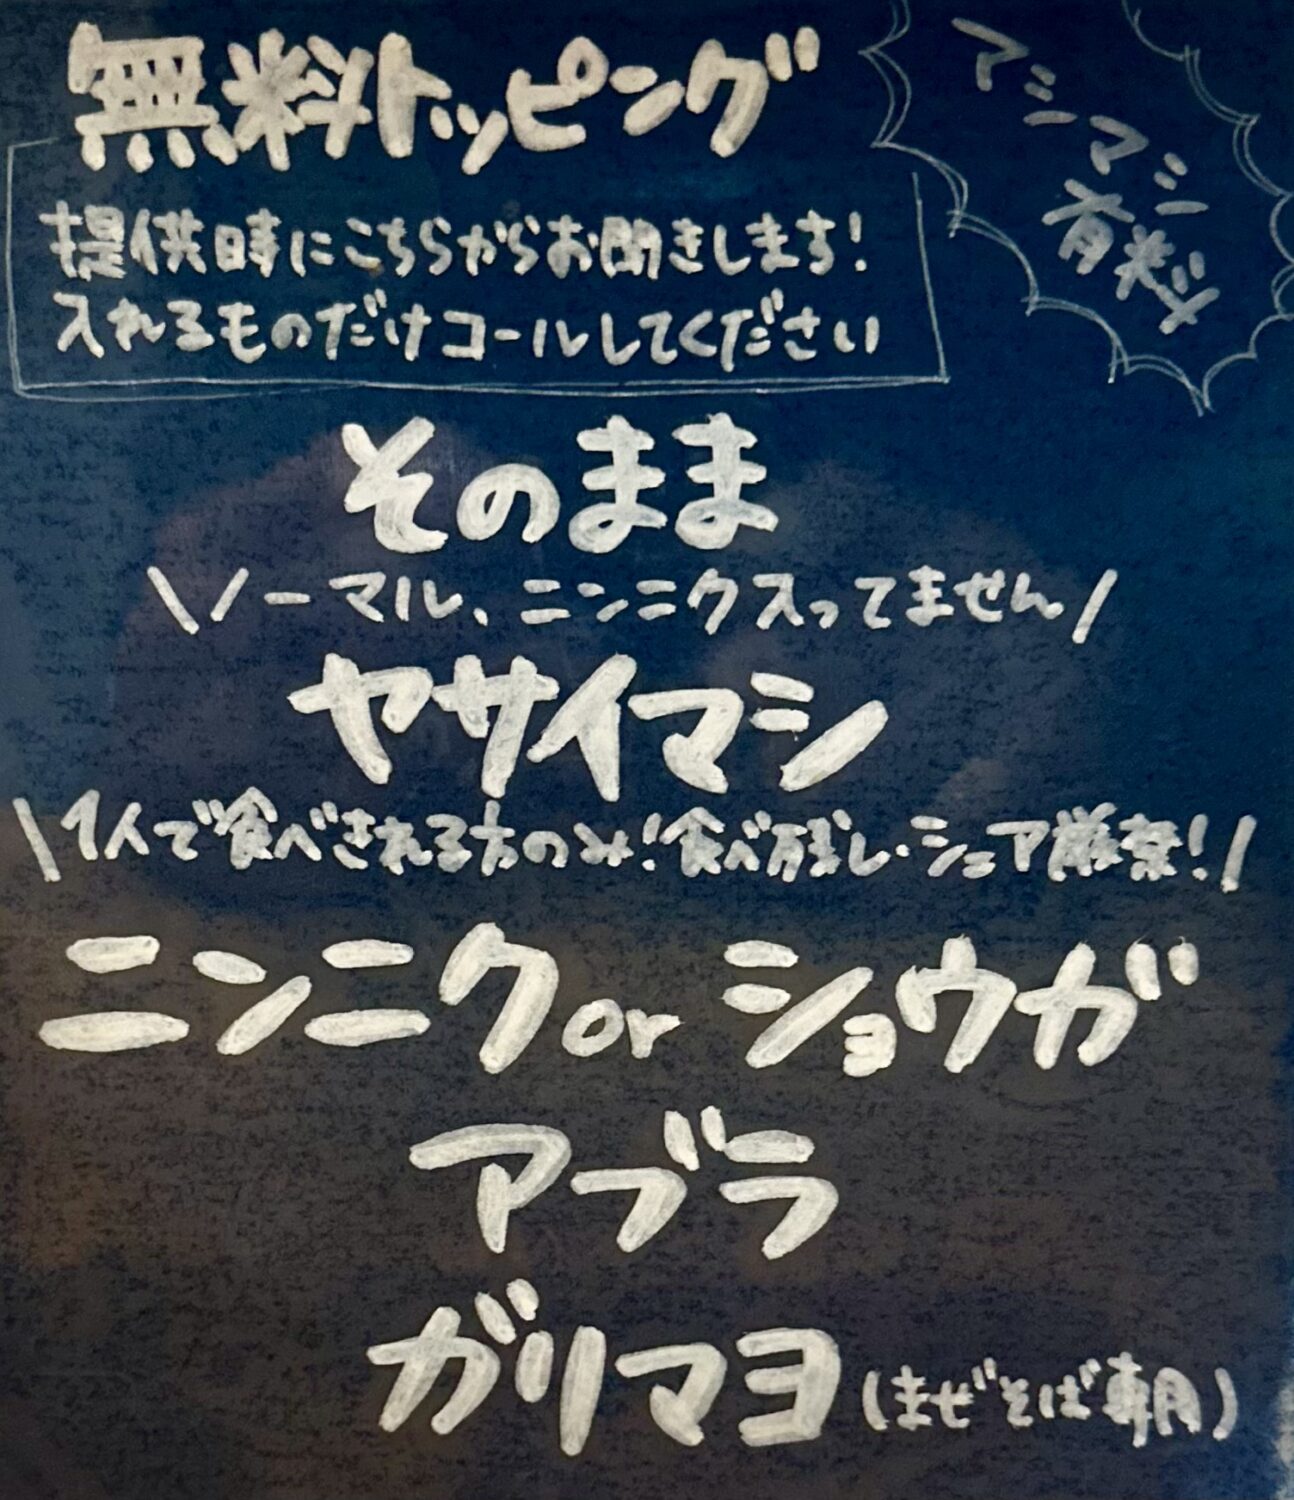 無料トッピング
マシマシ
有料
提供時にこちらからお聞きします!
入れるものだけコールしてください
そのまま
\ノーマル、ニンニク入ってません/
ヤサイマシ
\1人で食べきれる方のみ!食べ残し・シェア厳禁!/
ニンニク or ショウガ
アブラ
ガリマヨ(まぜそば専用)